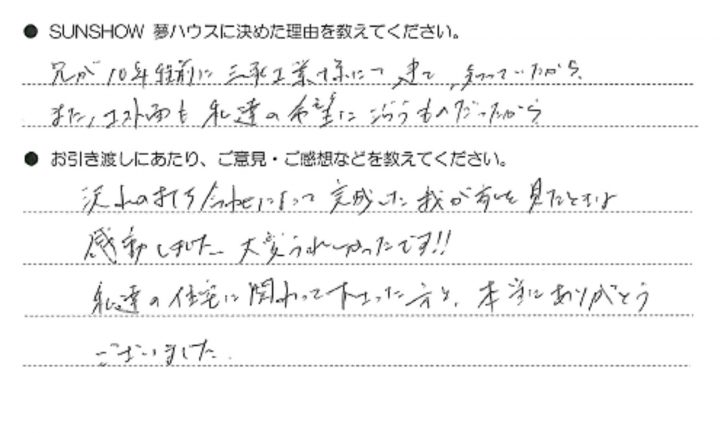 ● SUNSHOW 夢ハウスに決めた理由を教えてください。
兄が10年程前に三承工業様にて建て、知っていたから。
また、コスト面も私達の希望に沿うものだったから
● お引き渡しにあたり、ご意見・ご感想などを教えてください。
沢山の打ち合わせによって完成した我が家を見たときは
感動しました。大変うれしかったです!!
私達の住宅に関わって下さった方々、本当にありがとう
ございました。